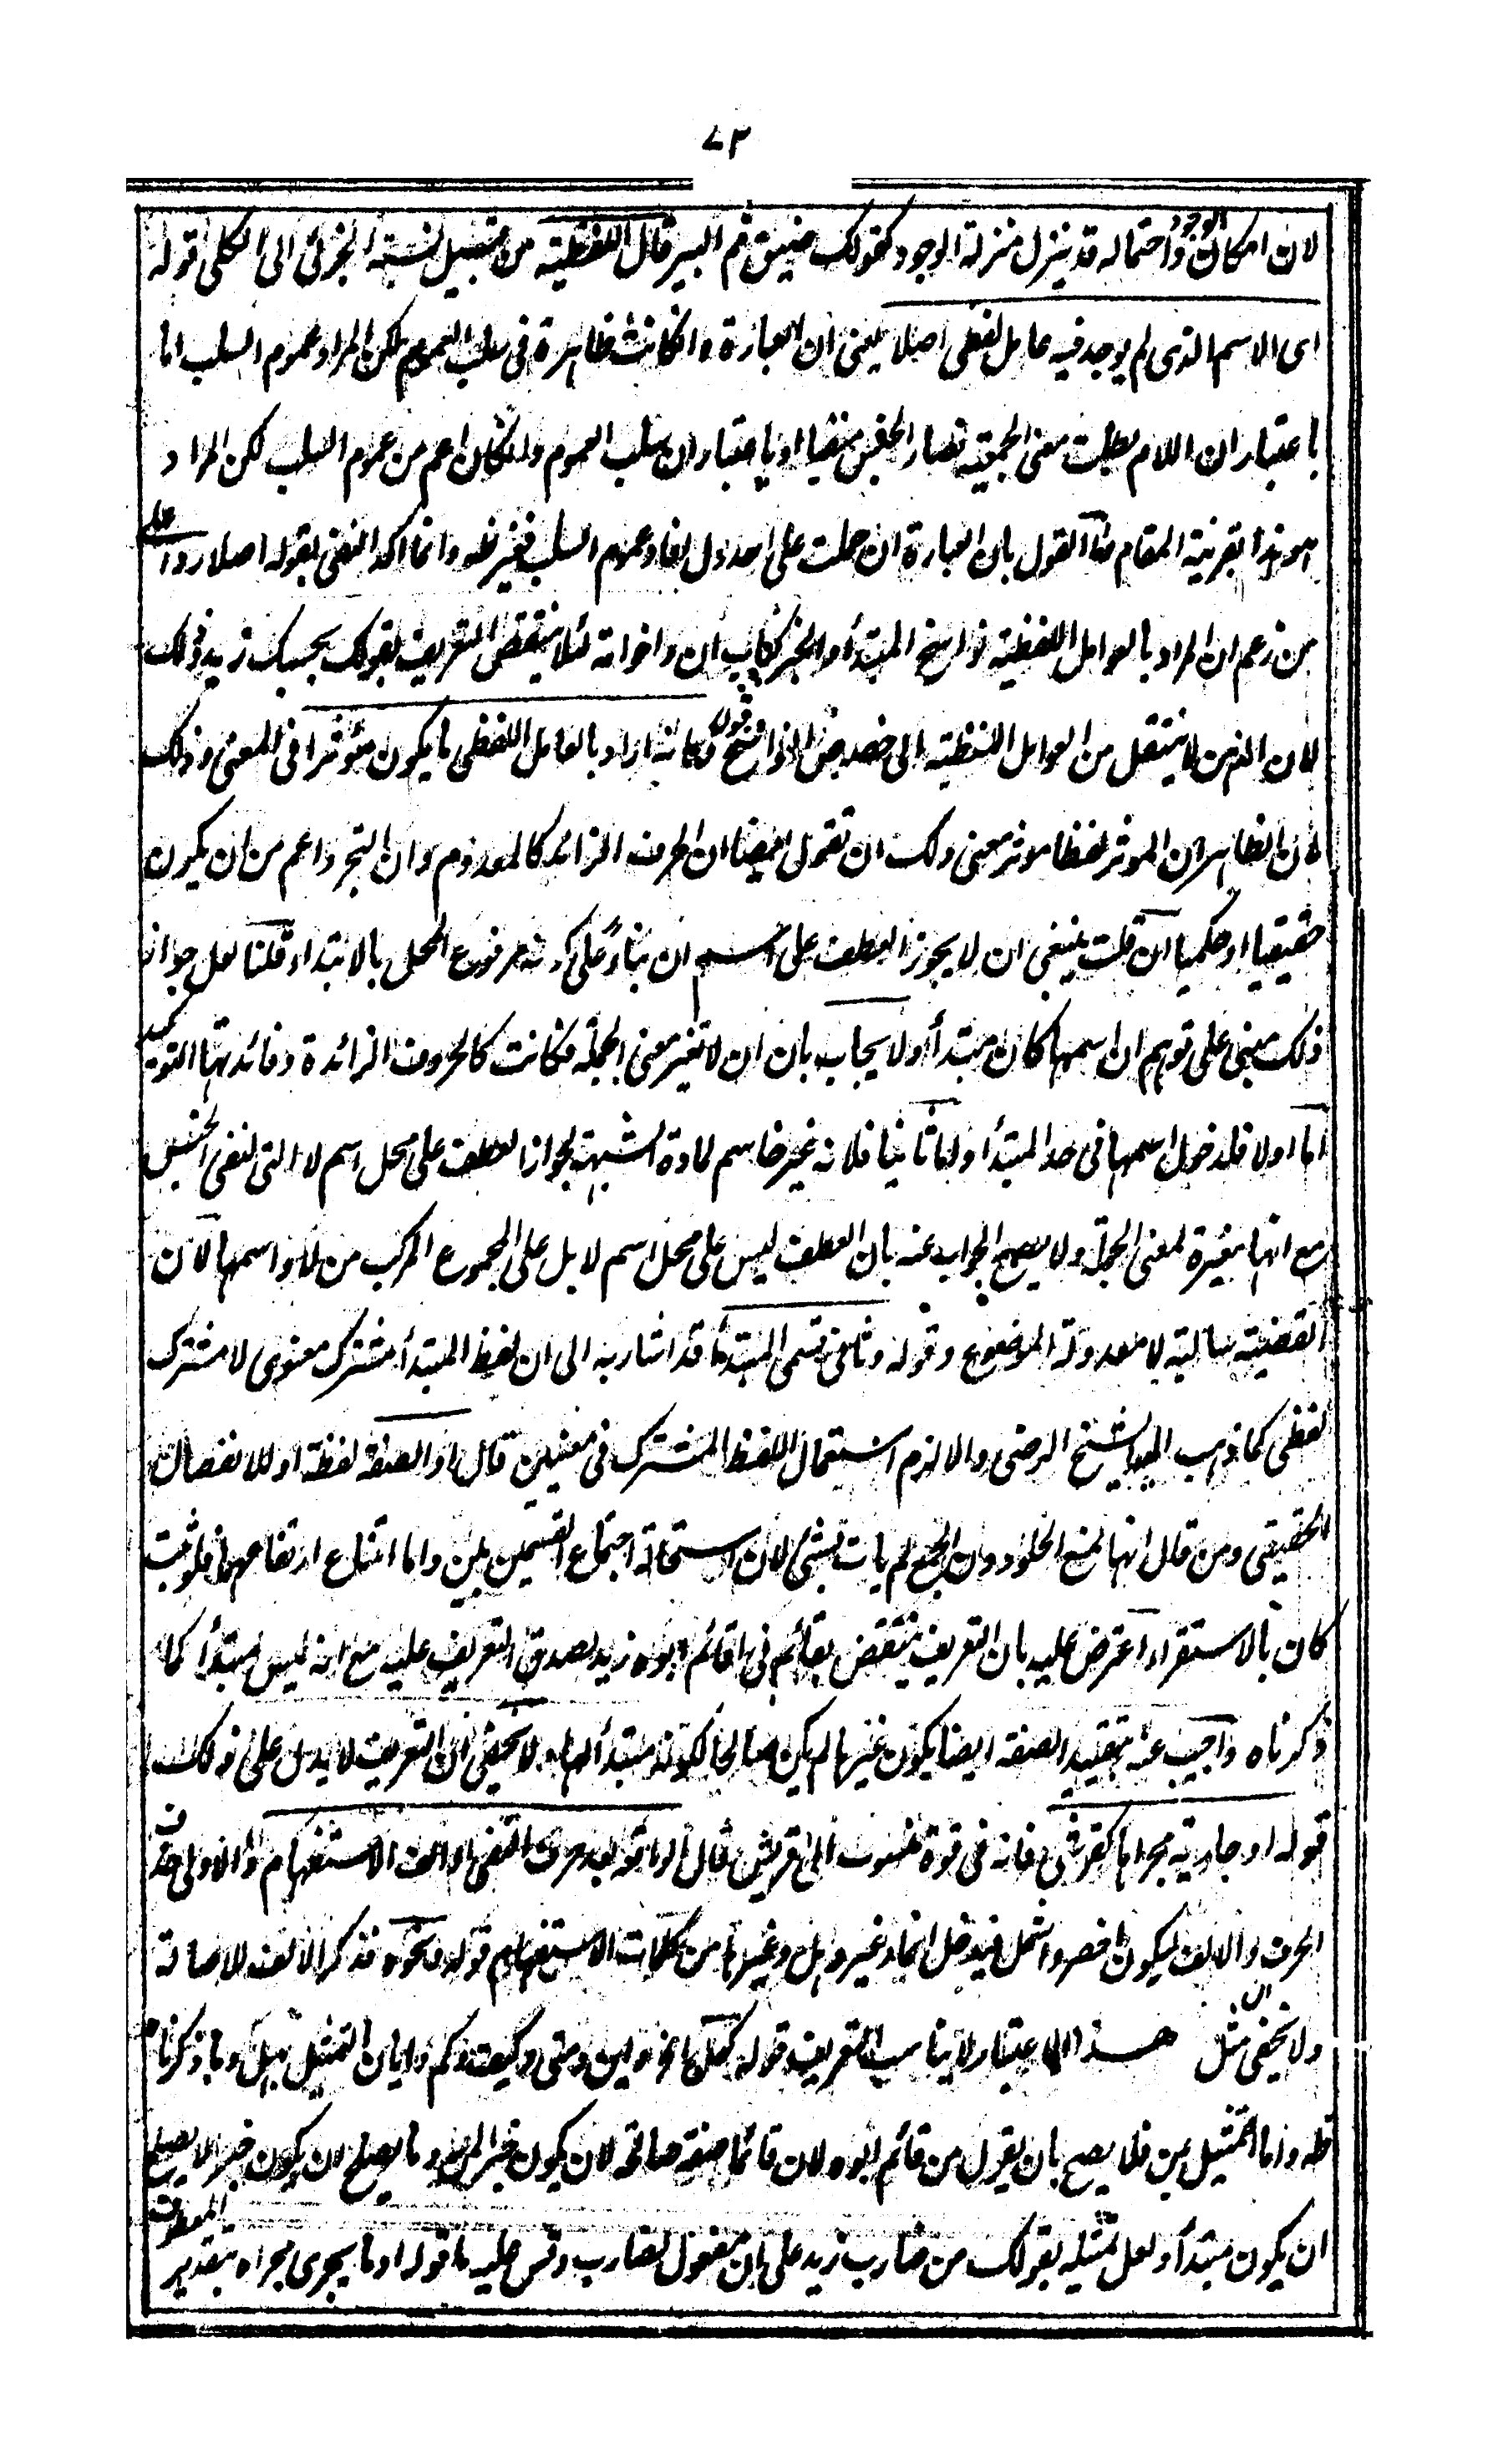 ٧٣
لان امكان الوجود واحتماله قد ينزل منزلة الوجود كقولك ضيق فم البير قال اللفظية من قبيل نسبة الجزئى الى الكلى قوله
اى الاسم الذى لم يوجد فيه عامل لفظى اصلا يعنى ان العبارة وانكانت ظاهرة فى سلب العموم لكن المراد عموم السلب اما
باعتبار ان اللام بطلت معنى الجمعية فصار الجنس منفيا او باعتبار ان سلب العموم وانكان اعم من عموم السلب لكن المراد
هو هذا بقرينة المقام واما القول بان العبارة ان حملت على العدول افاد عموم السلب فغير ظه وانما اكد النفى بقوله اصلا ردا على
من زعم ان المراد بالعوامل اللفظية نواسخ المبتدأ والخبر كباب ان واخواته لئلا ينتقض التعريف بقولك بحسبك زيد وذلك
لان الذهن لا ينتقل من العوامل اللفظية الى خصوص النواسخ وقوله وكانه اراد بالعامل اللفظى ما يكون مؤثرا فى المعنى وذلك
لان الظاهر ان الموثر لفظا موثر معنى ولك ان تقول ايضا ان الحرف الزائد كالمعدوم وان التجرد اعم من ان يكون
حقيقيا او حكميا ان قلت ينبغى ان لا يجوز العطف على اسم ان بناءً على كونه مرفوع المحل بالابتداء قلنا لعل جواز
ذلك مبنى على توهم ان اسمها كان مبتدأ ولا يجاب بان ان لا تغير معنى الجملة فكانت كالحروف الزائدة وفائدتها التوكيد
اما اولا فلدخول اسمها فى حد المبتدأ واما ثانيا فلانه غير حاسم لمادة الشبهة لجواز العطف على محل اسم لا التى لنفى الجنس
مع انها مغيرة لمعنى الجملة ولا يصح الجواب عنه بان العطف ليس على محل اسم لا بل على المجموع المركب من لا واسمها لان
القضية سالبة لا معدولة الموضوع وقوله وثانى قسمى المبتدأ قد اشار به الى ان لفظ المبتدأ مشترك معنوى لا مشترك
لفظى كما ذهب اليه الشيخ الرضى والا لزم استعمال اللفظ المشترك فى معنيين قال او الصفة لفظة او للانفصال
الحقيقى ومن قال انها لمنع الخلو دون الجمع لم يات بشئ لان استحالة اجتماع القسمين بين واما امتناع ارتفاعهما فلو ثبت
كان بالاستقراء اعترض عليه بان التعريف ينتقض بقائم فى اقائم ابوه زيد لصدق التعريف عليه مع انه ليس مبتدأ كما
ذكرناه واجيب عنه بتقييد الصفة ايضا بكون غيرها لم يكن صالحا لكونه مبتدأ لها ولا يخفى ان التعريف لا يدل على ذلك
قوله او جارية مجراها كقرشى فانه فى قوة منسوب الى قريش قال الواقعة بعد حرف النفى او الف الاستفهام والاولى حذف
الحرف والالف ليكون اخصر واشمل فيدخل انما وغير وهل وغيرها من كلمات الاستفهام قوله ونحوه فذكر الالف للاصالة
ولا يخفى ان مثل هذا الاعتبار لا يناسب التعريف قوله كهل وما نحو اين ومتى وكيف وكم وايان التمثيل بهل وما ذكرنا
ظه واما التمثيل بمن فلا يصح بان يقول من قائم ابوه لان قائما صفة صالحة لان يكون خبرا لمن وما يصلح ان يكون خبرا لا يصلح
ان يكون مبتدأ ولعل تمثيله بقولك من ضارب زيد على ان مفعول لضارب وقس عليه ما قوله او ما يجرى مجراه بتقدير المعطوف